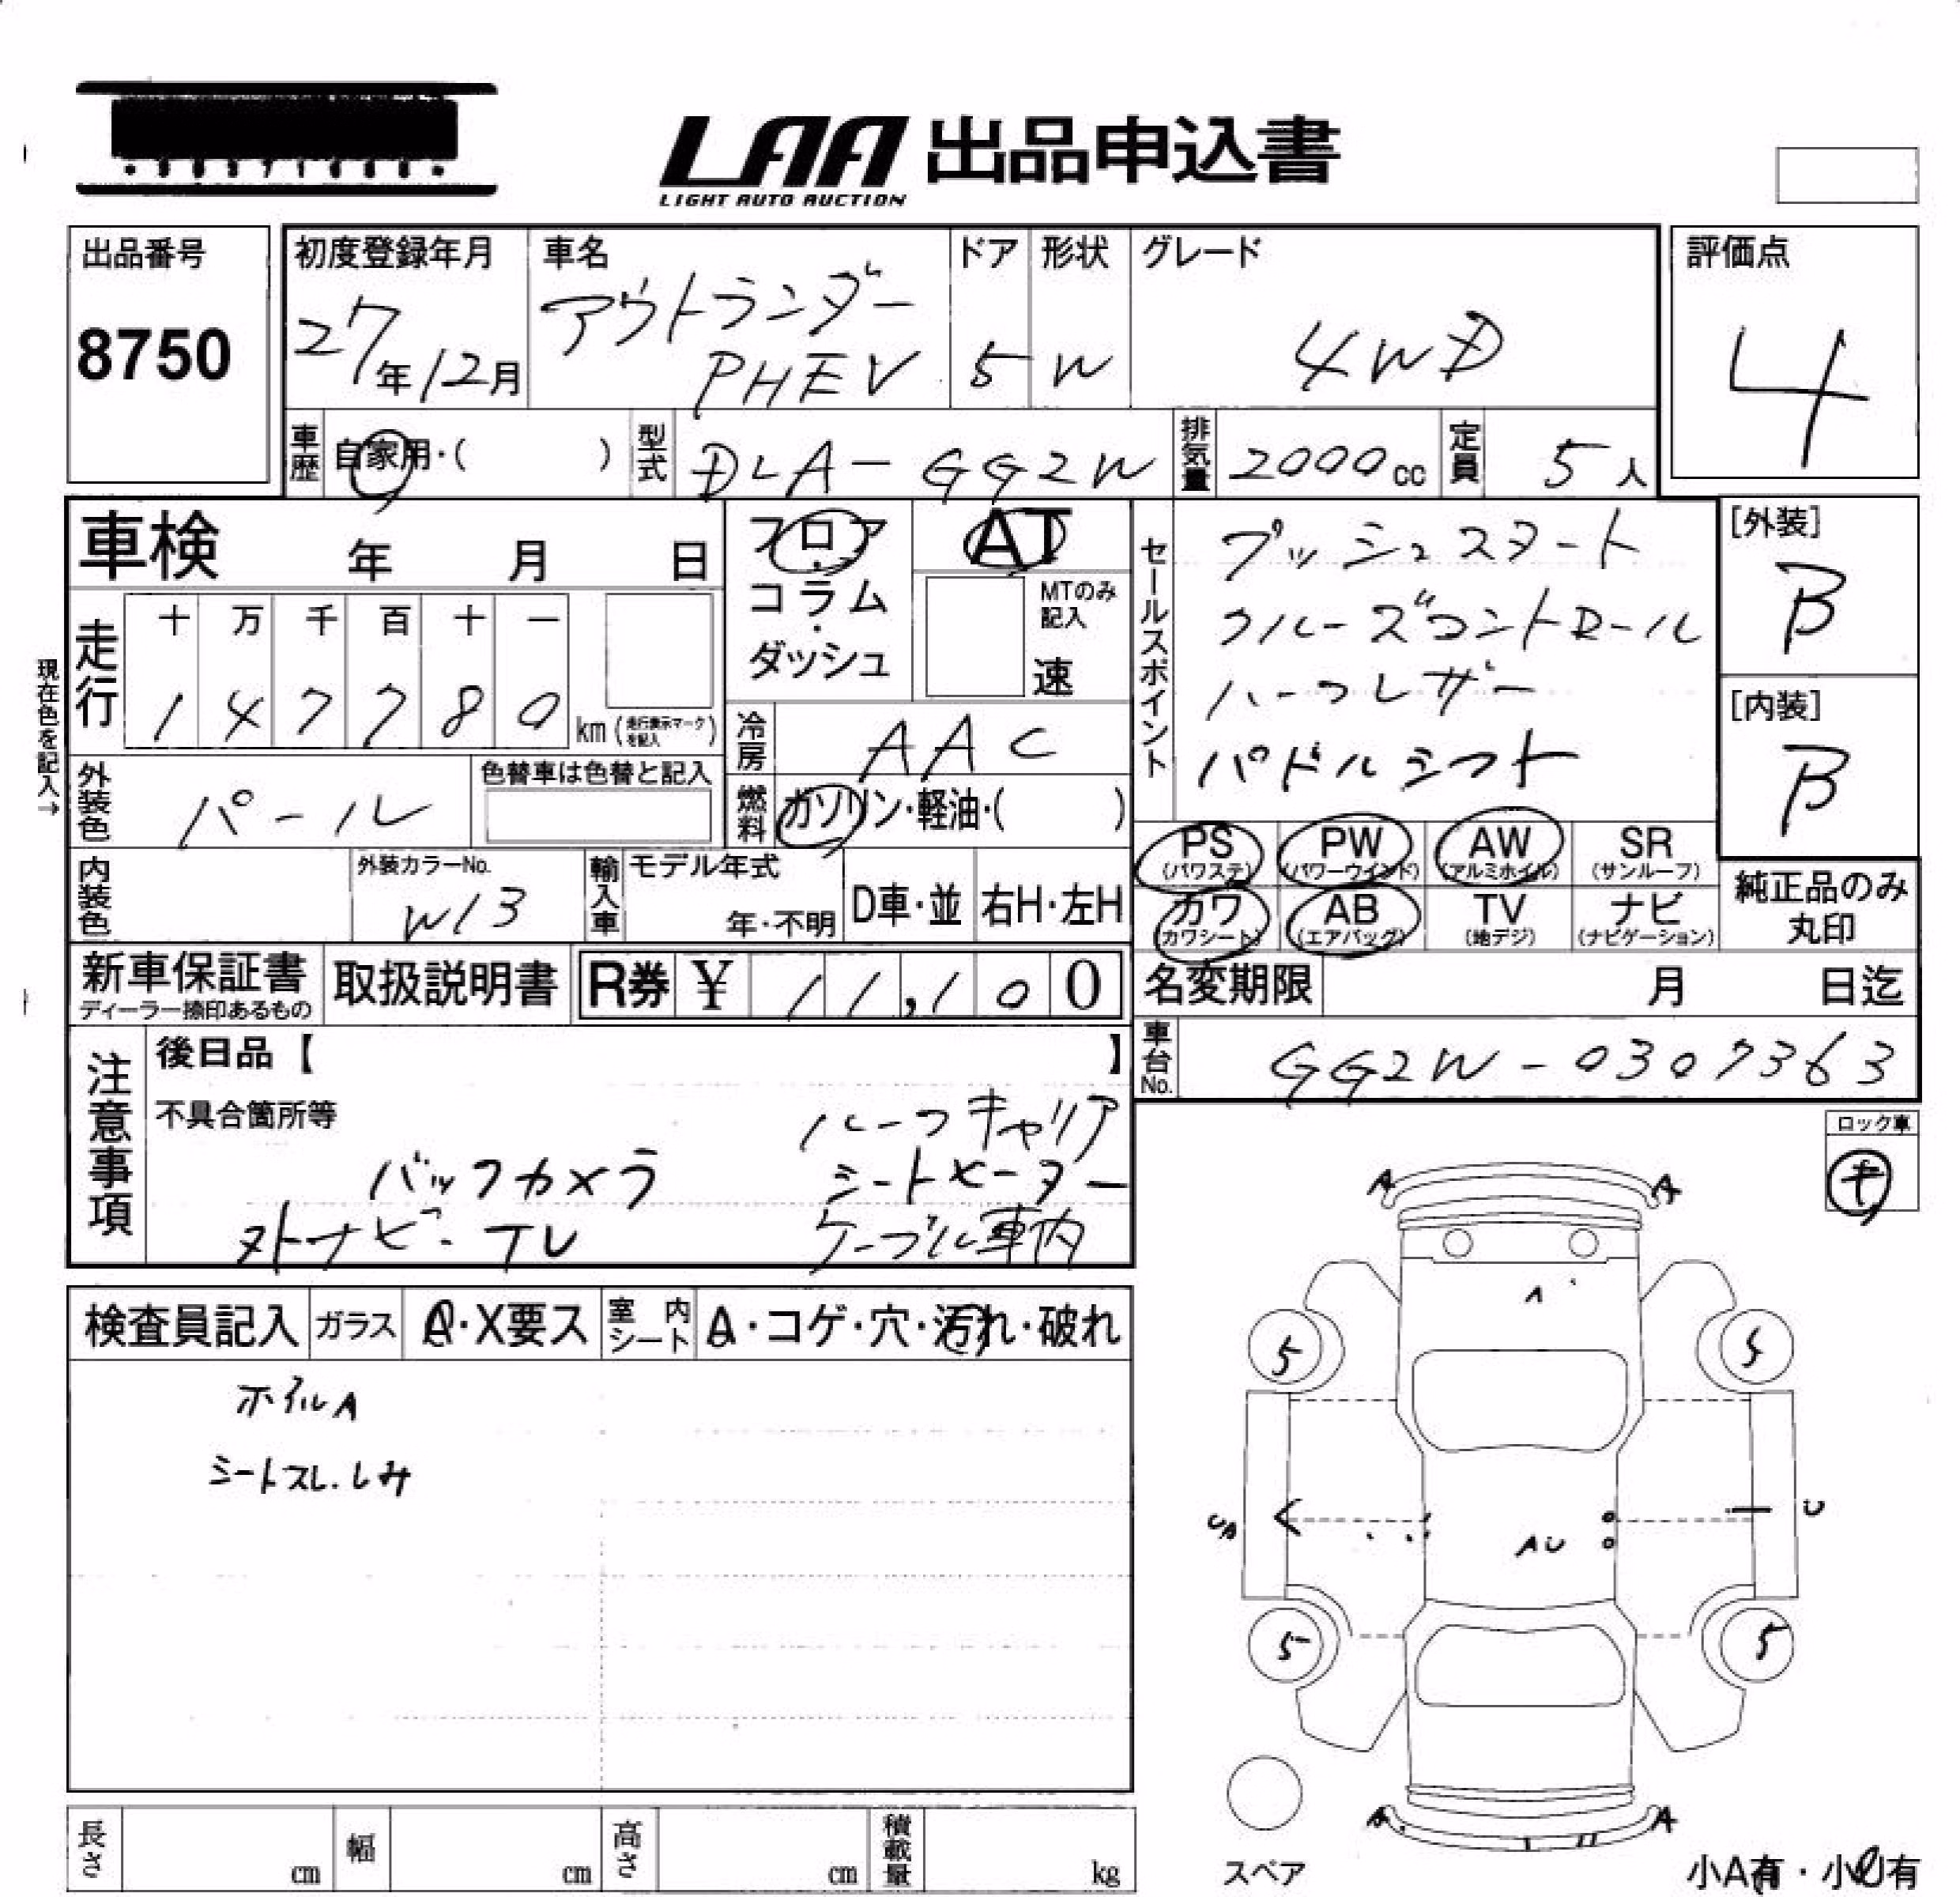 LAA 出品申込書
LIGHT AUTO AUCTION
出品番号
8750
初度登録年月
27年12月
車名
アウトランダー
PHEV
ドア
5
形状
W
グレード
4WD
評価点
4
車歴 自家用・( )
型式 DLA-GG2W
排気量 2000cc
定員 5人
車検 年 月 日
フロア・コラム・ダッシュ
AT
MTのみ記入
速
セールスポイント
プッシュスタート
クルーズコントロール
ハーフレザー
パドルシフト
[外装]
B
[内装]
B
現在色を記入→
走行
十 万 千 百 十 一
1 4 7 7 8 0 km (走行表示マークを記入)
冷房 AAC
外装色 パール
色替車は色替と記入
燃料 ガソリン・軽油・( )
PS (パワステ)
PW (パワーウインド)
AW (アルミホイル)
SR (サンルーフ)
カワ (カワシート)
AB (エアバッグ)
TV (地デジ)
ナビ (ナビゲーション)
純正品のみ
丸印
内装色
外装カラーNo.
W13
輸入車
モデル年式
年・不明
D車・並
右H・左H
新車保証書
ディーラー捺印あるもの
取扱説明書
R券 ¥ 11,100
名変期限 月 日迄
車台No. GG2W-0307363
注意事項
後日品【 】
不具合箇所等
ルーフキャリア
バックカメラ
シートヒーター
ナビ・TV
ケーブル車内
ロック車
キ
検査員記入
ガラス A・X要ス
室内シート A・コゲ・穴・汚れ・破れ
ホイルA
シートスレ.しみ
A A
A
5 5
UA
AU
U
5 5
A A
スペア
小A有・小U有
長さ cm
幅 cm
高さ cm
積載量 kg